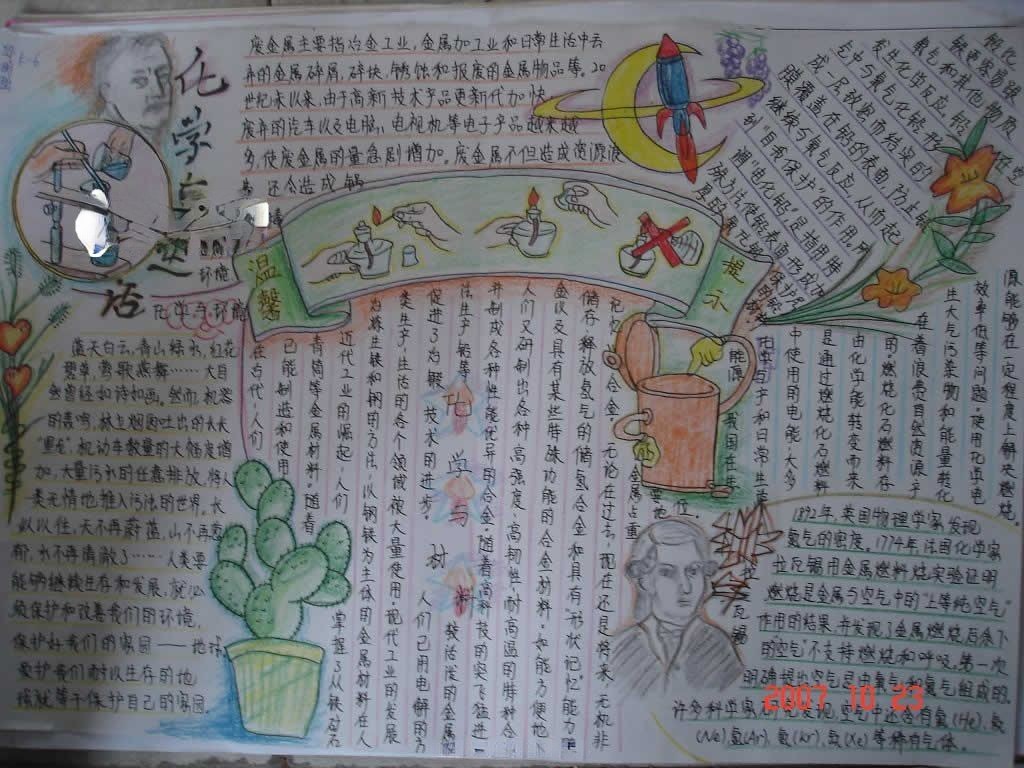 化学与生活
废金属主要指冶金工业，金属加工业和日常生活中丢
弃的金属碎屑，碎块，锈蚀和报废的金属物品等。20
世纪末以来，由于高新技术产品更新代加快
废弃的汽车以及电脑，电视机等电子产品越来越
多，使废金属的量急剧增加。废金属不但造成资源浪
费 还会造成
环境
温馨
提示
化学与环境
蓝天白云，青山绿水，红花
碧草，莺歌燕舞……大自
然曾经如诗如画。然而，机器
的轰鸣，林立烟囱吐出的大长
“黑龙”，机动车数量的大幅度增
加，大量污水的任意排放，将人
类无情地推入污浊的世界。长
以以往，天不再蔚蓝，山不再
，水不再清澈了……人类要
能够继续生存和发展，就
须保护和改善我们的环境，
保护好我们的家园——地球，
爱护我们耐以生存的地
球就等于保护自己的家园。
化学与材料
在古代，人们
已能制造和使用
青铜等金属材料。随着
近代工业的崛起，人们
掌握了从铁矿石
为炼生铁和钢的方法，以钢铁为主体的金属材料在人
类生产，生活的各个领域被大量使用。现代工业的发展
促进了冶锻 技术的进步。 人们已用电解的方
法生产铝等 较活泼的金属
并制成各种性能优异的合金。随着高科技的突飞猛进
人们又研制出各种高强度，高韧性，耐高温的特种合
金以及具有某些特殊功能的合金材料。如能方便地
储存，释放氢气的储氢合金和具有“形状记忆”能力
记忆合金。无论在过去，现在还是将来，无机非
金属占重
位。
能源
我国在生
化学电子和日常生活
中使用用电能，大多
是通过燃烧化石燃料
由化学能转变而来
的。燃烧化石燃料存
在着浪费自然资源，
生大气污染物和能量转化
效率低等问题。使用化学电
源能够在一定程度上解决燃烧。
氧气和其他物质
发生化学反应，铝
空中与氧气化铝，形
成一层致密而结实的
膜覆盖在铝的表面，防止铝
继续与氧气反应，从而起
到“自我保护”的作用。所
谓“钝化铝”是指用特
殊方法使铝表面形成加
1892年，英国物理学家发现
氮气的密度。1774年，法国化学家
拉瓦锡用金属燃料烧实验证明
燃烧是金属与空气中的“上等纯空气”
作用的结果，并发现了金属燃烧后余下
的空气“不支持燃烧和呼吸，第一次
明确提出空气是由氧气和氮气组成的。
许多科学家研究发现，空气中还含有氦(He)，氖
(Ne)，氩(Ar)，氪(Kr)，氙(Xe)等稀有气体。
拉瓦锡
2007 10 23